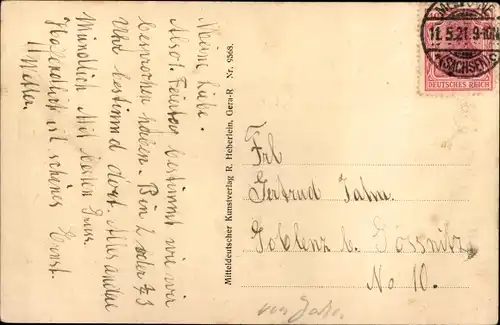 Meine Liebe.
Also Freitag bestimmt wie wir
besprochen haben. Bin 2 oder ½3
Uhr bestimmt dort. Alles andre
Mündlich. Mit besten Gruss
Ernst.
Hoffentlich ist schönes
Wetter.
Mitteldeutscher Kunstverlag R. Heberlein, Gera-R Nr. 9568.
11.5.21. 9-10
(SACHSEN)
DEUTSCHES REICH
Frl
Gertrud Jahn
b. Gössnitz
No 10.